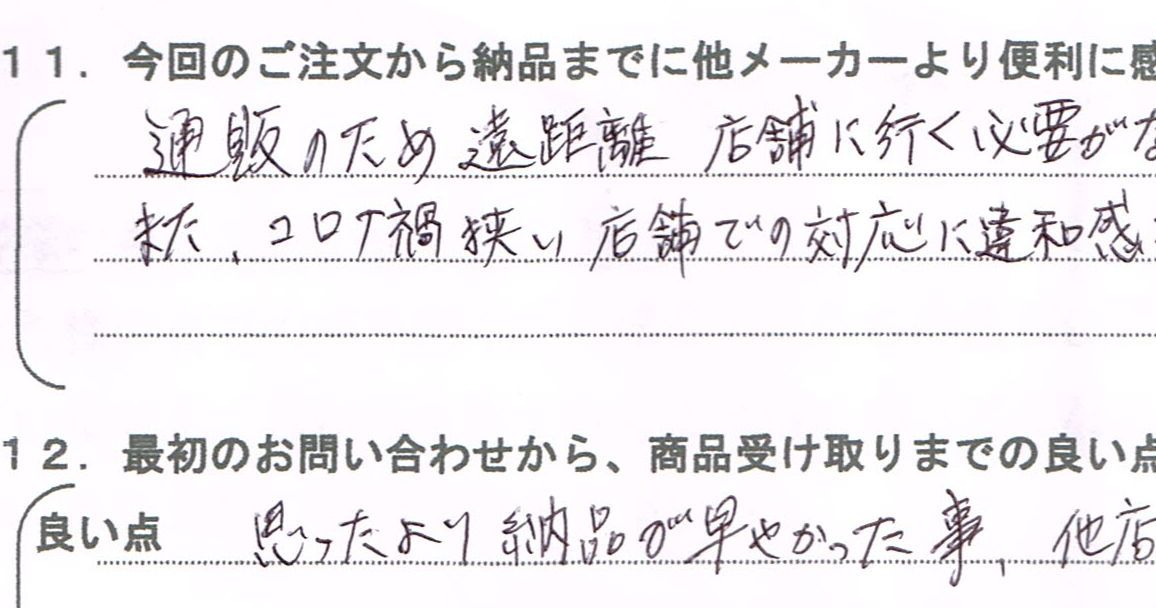 11. 今回のご注文から納品までに他メーカーより便利に感
通販のため遠距離 店舗に行く必要がな
また、コロナ禍狭い店舗での対応に違和感
12. 最初のお問い合わせから、商品受け取りまでの良い点
良い点 思ったより納品が早やかった事、他店